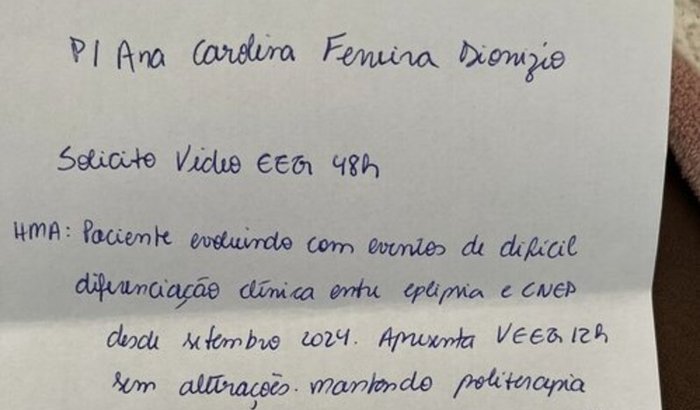 P/ Ana Carolina Ferreira Dionizio
Solicito Video EEG 48h
HMA: Paciente evoluindo com eventos de difícil
diferenciação clínica entre eplipsia e CNEP
desde setembro 2024. Apresenta VEEG 12h
sem alterações. mantendo politerapia